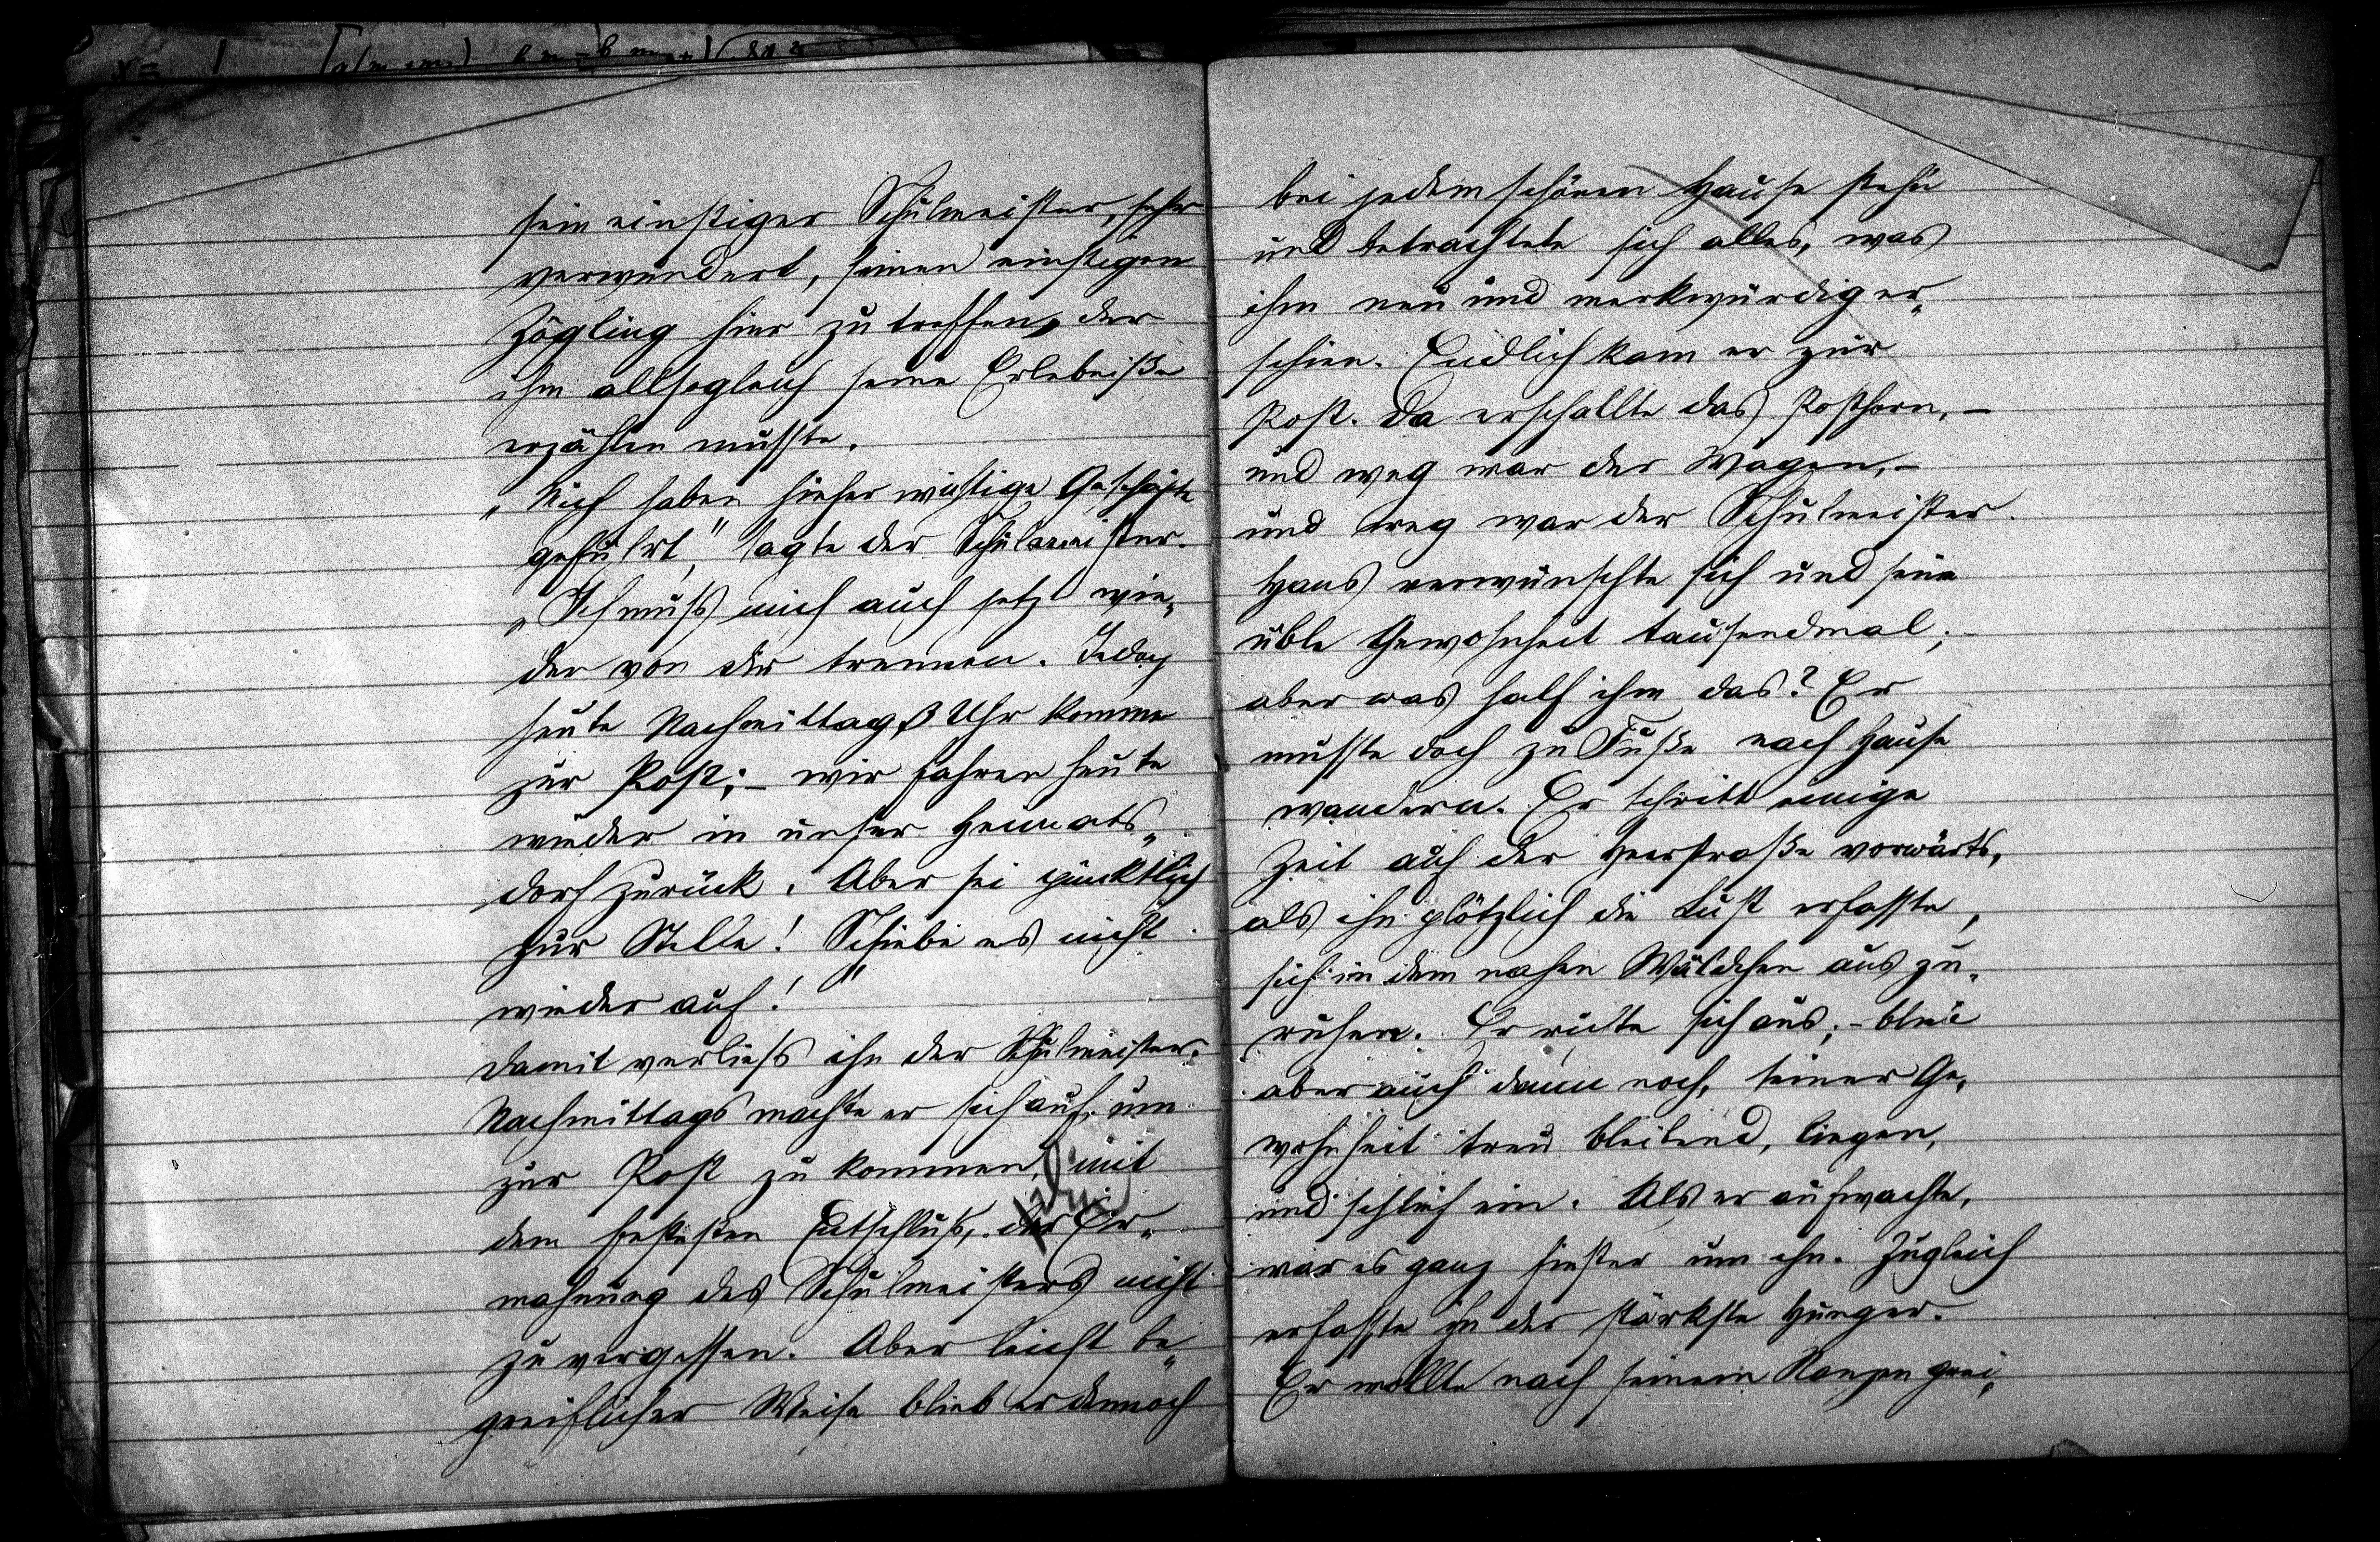 sein einstiger Schulmeister, sehr
verwundert, seinen einstigen
Zögling hier zu treffen, der
ihm allsogleich seine Erlebniße
erzählen mußte.
„Mich haben hieher wichtige Geschäfte
geführt," sagte der Schulmeister.
„Ich muß mich auch jetzt wie„
der von dir trennen. Jedoch
heute Nachmittag 3 Uhr komme
zur Post; – wir fahren heute
wieder in unser Heimats„
dorf zurück. Aber sei pünktlich
zur Stelle! Schiebe es nicht
wieder auf!"
Damit verließ ihn der Schulmeister.
Nachmittags machte er sich auf, um
zur Post zu kommen, mit
dem festesten Entschluß, der Er„
mahnung des Schulmeisters nicht
zu vergessen. Aber leicht be„
greiflicher Weise blieb er dennoch
bei jedem schönen Hause stehn
und betrachtete sich alles, was
ihm neu und merkwürdig er„
schien. Endlich kam er zur
Post. Da erschallte das Posthorn, –
und weg war der Wagen, –
und weg war der Schulmeister.
Hans verwünschte sich und seine
üble Gewohnheit tausendmal; –
aber was half ihm das? Er
mußte doch zu Fuße nach Hause
wandern. Er schritt einige
Zeit auf der Heerstraße vorwärts,
als ihn plötzlich die Lust erfasste,
sich in dem nahen Wäldchen auszu„
ruhen. Er ruhte sich aus; – blieb
aber auch dann noch, seiner Ge„
wohnheit treu bleibend, liegen,
und schlief ein. Als er aufwachte,
war es ganz finster um ihn. Zugleich
erfasste ihn der stärkste Hunger.
Er wollte nach seinem Ranzen grei„